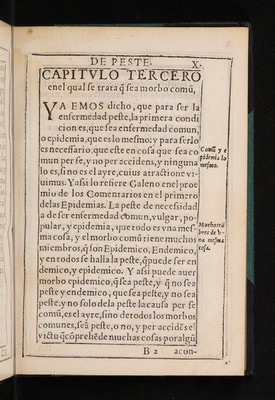 DE PESTE. X.
CAPITVLO TERCERO
enel qual se trata q̃ sea morbo comũ,
YA EMOS dicho, que para ser la
enfermedad peste, la primera condi
cion es, que sea enfermedad comun,
o epidemia, que es lo mesmo: y para serlo
es necessario, que este en cosa que sea co
mun per se, y no per accidens, y ninguna
lo es, sino es el ayre, cuius atractione vi
uimus. Y assi lo refiere Galeno enel proe
mio de los Comentarios en el primero
delas Epidemias. La peste de necessidad
a de ser enfermedad comun, vulgar, po
pular, y epidemia, que todo es vna mes
ma cosa, y el morbo comũ tiene muchos
miembros, q̃ son Epidemico, Endemico,
y en todos se halla la peste, q̃ puede ser en
demico, y epidemico. Y assi puede auer
morbo epidemico, q̃ sea peste, y q̃ no sea
peste y endemico, que sea peste, y no sea
peste, y no solo dela peste la causa per se
comũ, es el ayre, sino de todos los morbos
comunes, seã peste, o no, y per accidẽs el
victu q̃ cõprehẽde muchas cosas por algũ
B 2 acon-
Comũ y e
pidemia lo
mesmo.
bres de v-
na mesma
cosa.